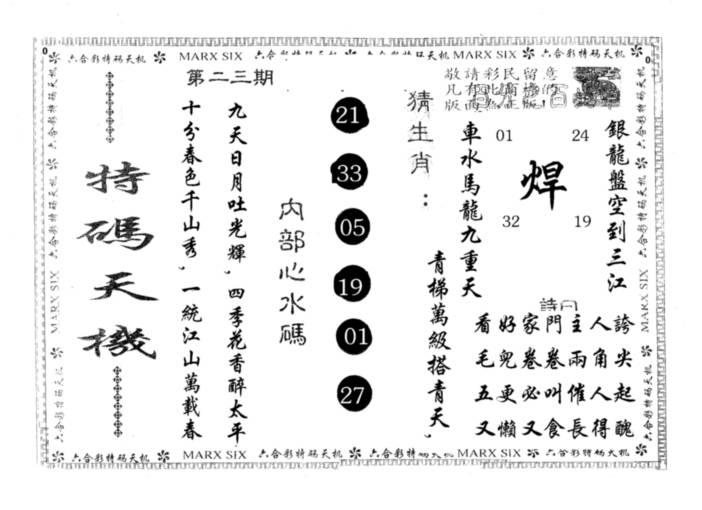 六合彩特码天机 MARX SIX 六合彩特码天机 MARX SIX 六合彩特码天机
第二三期
敬請彩民留意
銀龍盤空到三江
01 24
焊
32 19
車水馬龍九重天
猜生肖：
青梯萬級搭青天，
詩曰
看好家門主人誇
毛兒卷卷兩角尖
五更必叫催人起
又懶又食長得醜
21
33
05
19
01
27
內部心水碼
九天日月吐光輝，四季花香醉太平
十分春色千山秀，一統江山萬載春
特碼天機
六合彩特码天机 MARX SIX 六合彩特码天机
六合彩特码天机 MARX SIX 六合彩特码天机
六合彩特码天机 MARX SIX 六合彩特码天机 六合彩特码天机 MARX SIX 六合彩特码天机